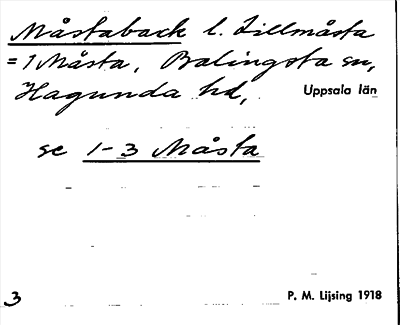 Måstaback l. Lillmåsta
= 1 Måsta, Balingsta sn,
Hagunda hd, Uppsala län
se 1-3 Måsta
3 P. M. Lijsing 1918